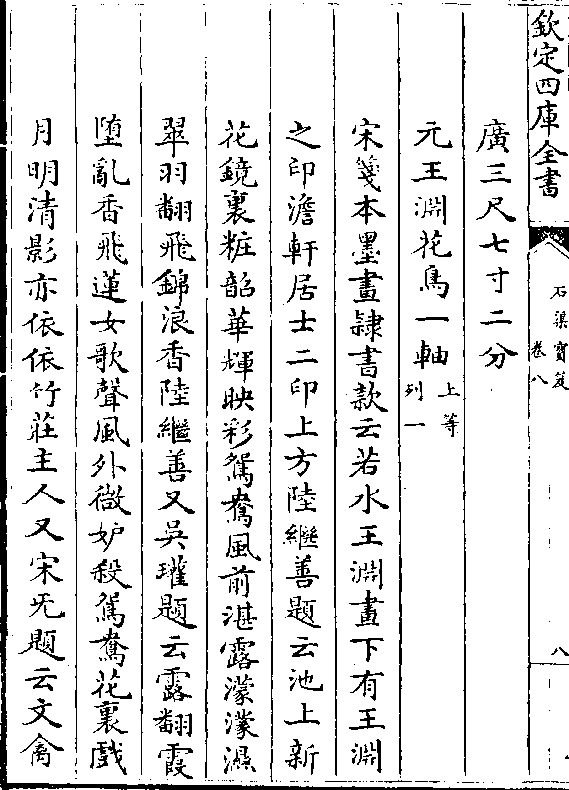 欽定四庫全書
石渠寳笈
卷八
八
廣三尺七寸二分
元王淵花鳥一軸上等
列一
宋箋本墨畫隸書款云若水王淵畫下有王淵
之印澹軒居士二印上方陸繼善題云池上新
花鏡裏粧韶華輝映彩鴛鴦風前湛露濛濛濕
翠羽翻飛錦浪香陸繼善又吳瓘題云露翻霞
墮亂香飛蓮女歌聲風外微妒殺鴛鴦花裏戲
月明清影亦依依竹莊主人又宋旡題云文禽